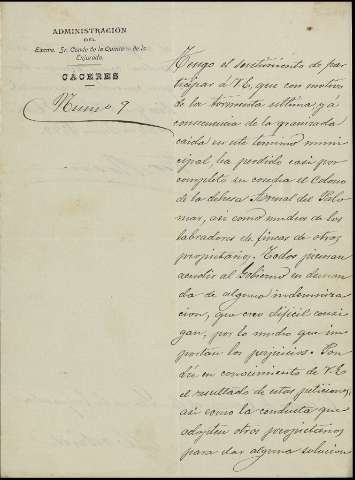 ADMINISTRACIÓN
DEL
Excmo. Sr. Conde de la Quinta de la
Enjarada
CÁCERES
Numo 9
Tengo el sentimiento de par
ticipar á V.E, que con motivo
de la tormenta ultima, y á
consecuencia de la granizada
caida en este termino muni
cipal, ha perdido casi por
completo su cosecha el Colono
de la dehesa Arenal del Palo
mar, así como muchos de los
labradores de fincas de otros
propietarios. Todos piensan
acudir al Gobierno en deman
da de alguna indemniza
cion, que creo dificil consi
gan, por lo mucho que im
portan los perjuicios. Pon
dré en conocimiento de V.E
el resultado de estas peticiones,
así como la conducta que
adopten otros propietarios
para dar alguna solucion